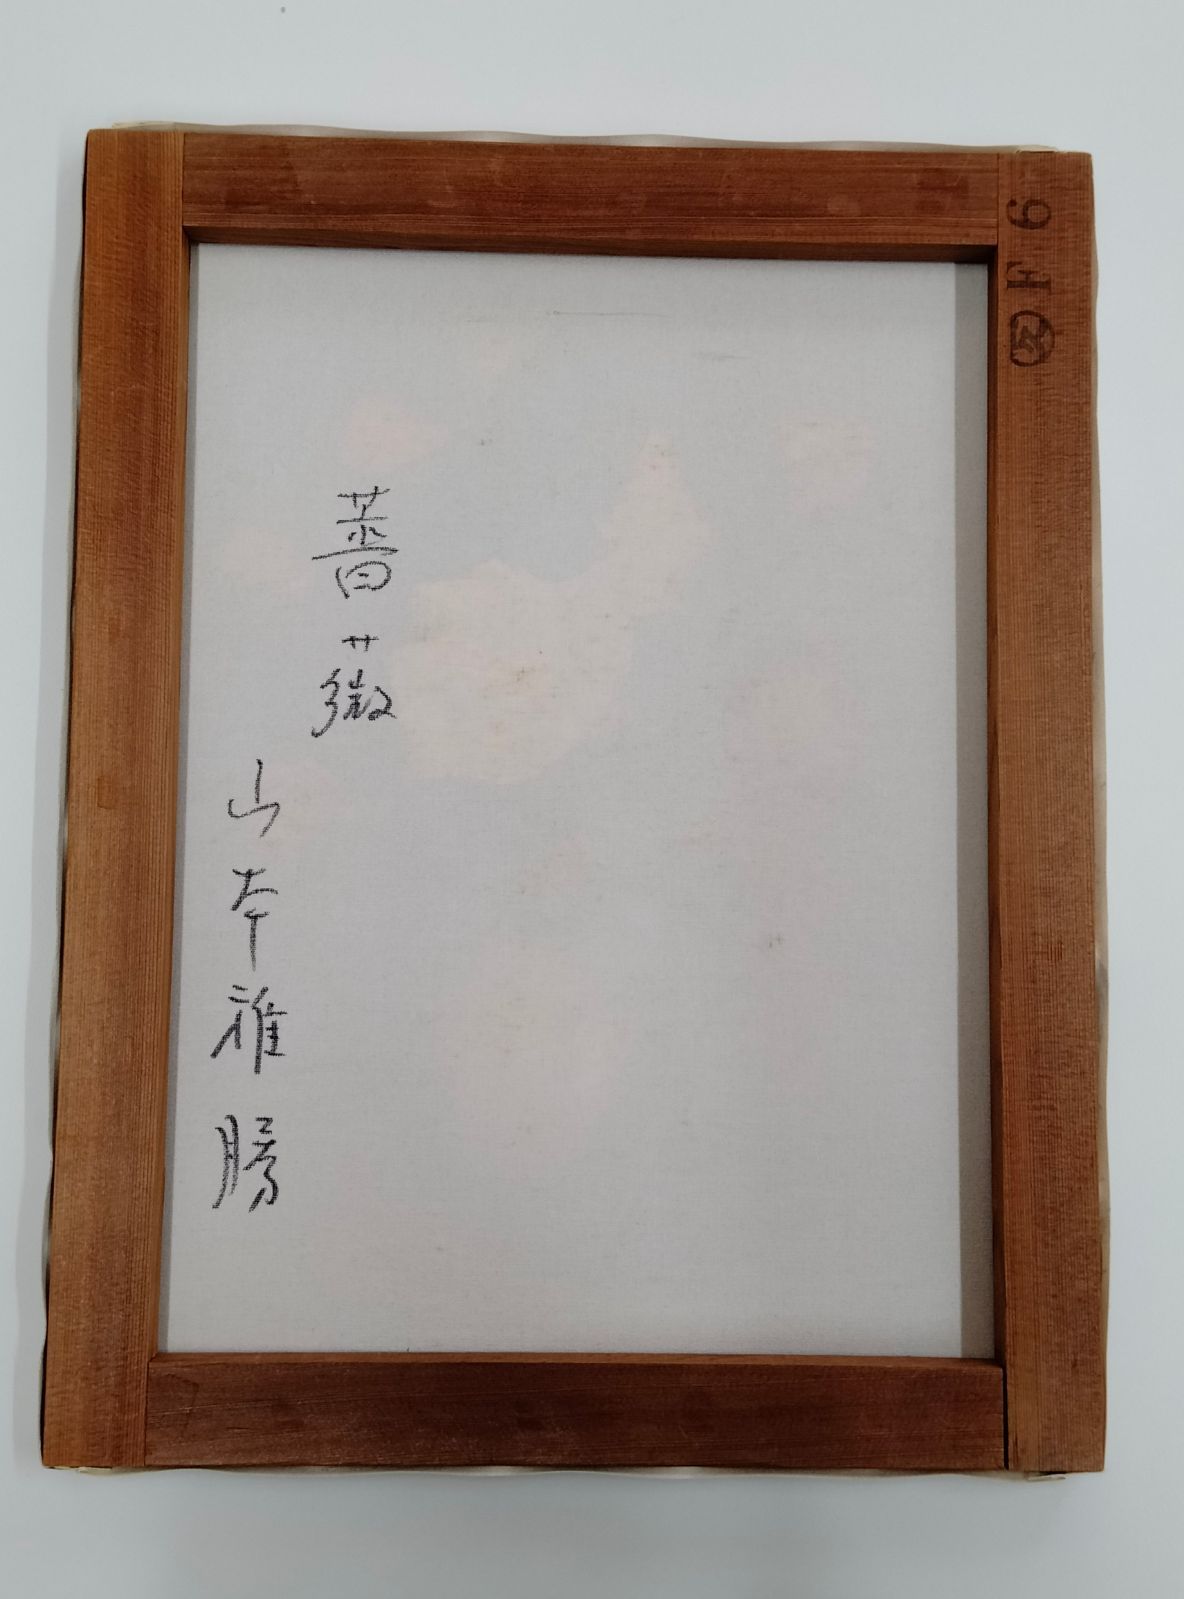 薔薇
山本雅勝
6 F